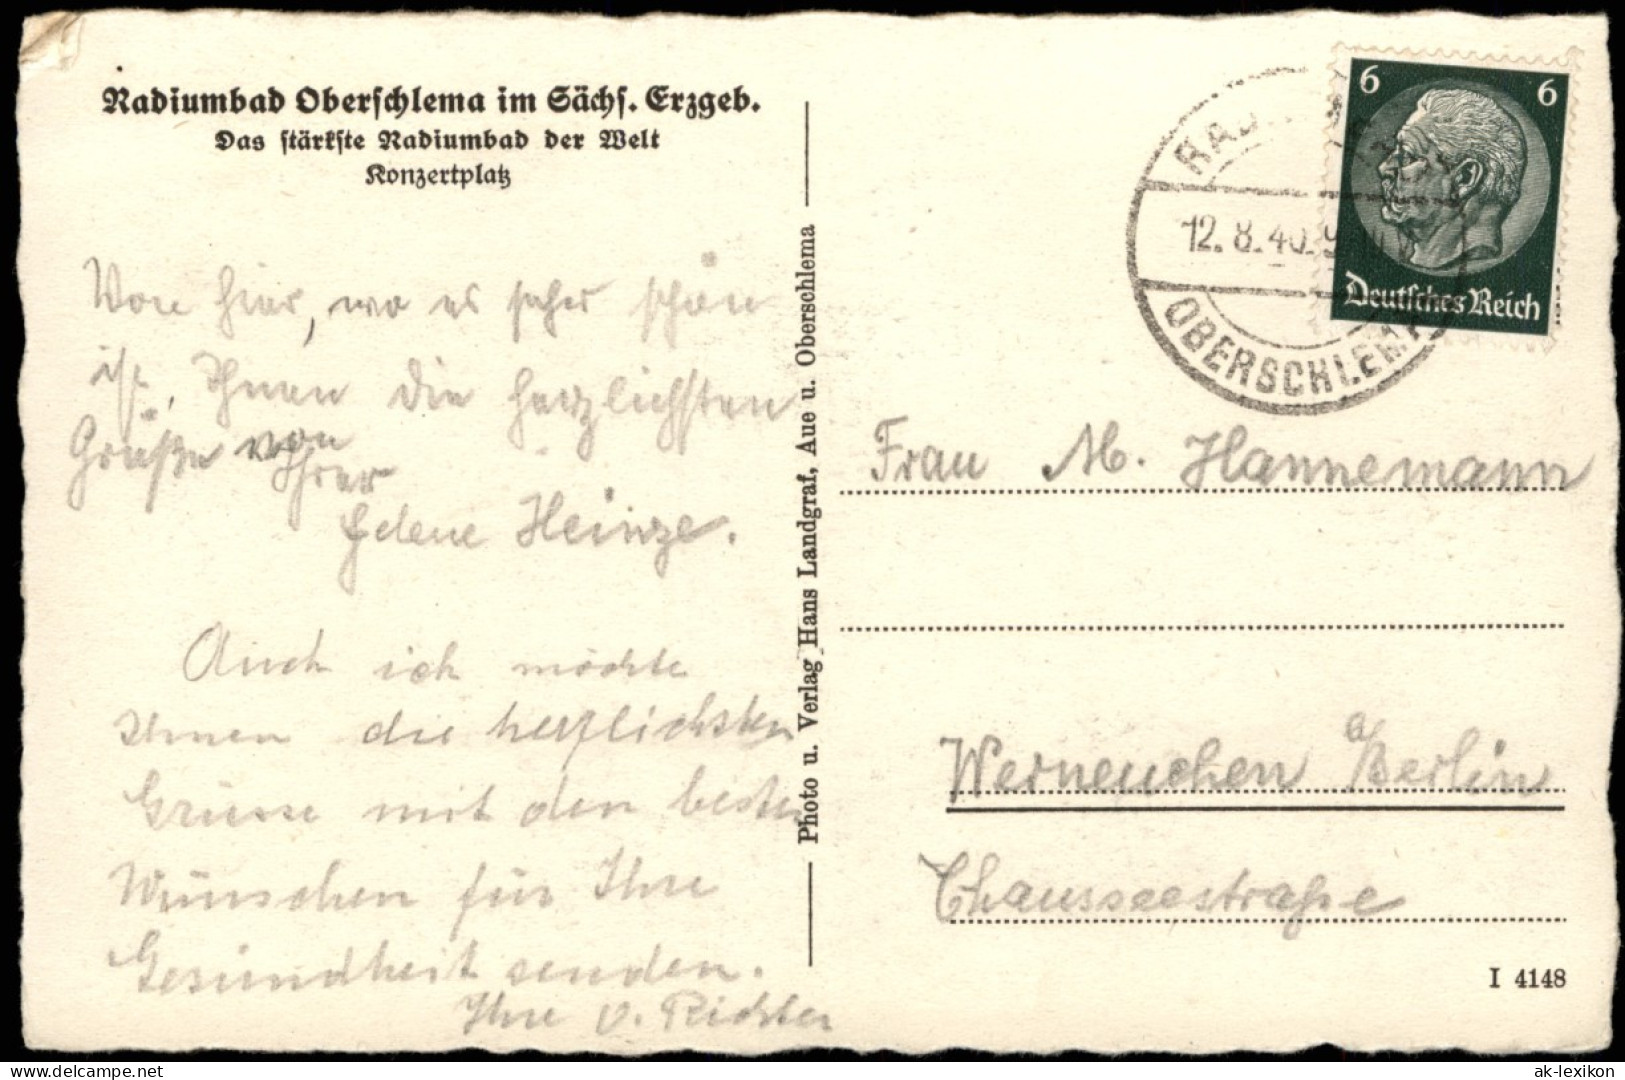 Radiumbad Oberschlema im Sächs. Erzgeb.
Das stärkste Radiumbad der Welt
Konzertplatz
Von hier, wo es sehr schön
ist, Ihnen die herzlichsten
Grüße von
Ihrer
Helene Heinze.
Auch ich möchte
Ihnen die herzlichsten
Grüsse mit den besten
Wünschen für Ihre
Gesundheit senden.
Ihre v. Richter
Photo u. Verlag Hans Landgraf, Aue u. Oberschlema
12.8.40.9
OBERSCHLEMA
6 6
Deutsches Reich
Frau M. Hannemann
Werneuchen b/Berlin
Chausseestraße
I 4148
delcampe.net
ak-lexikon